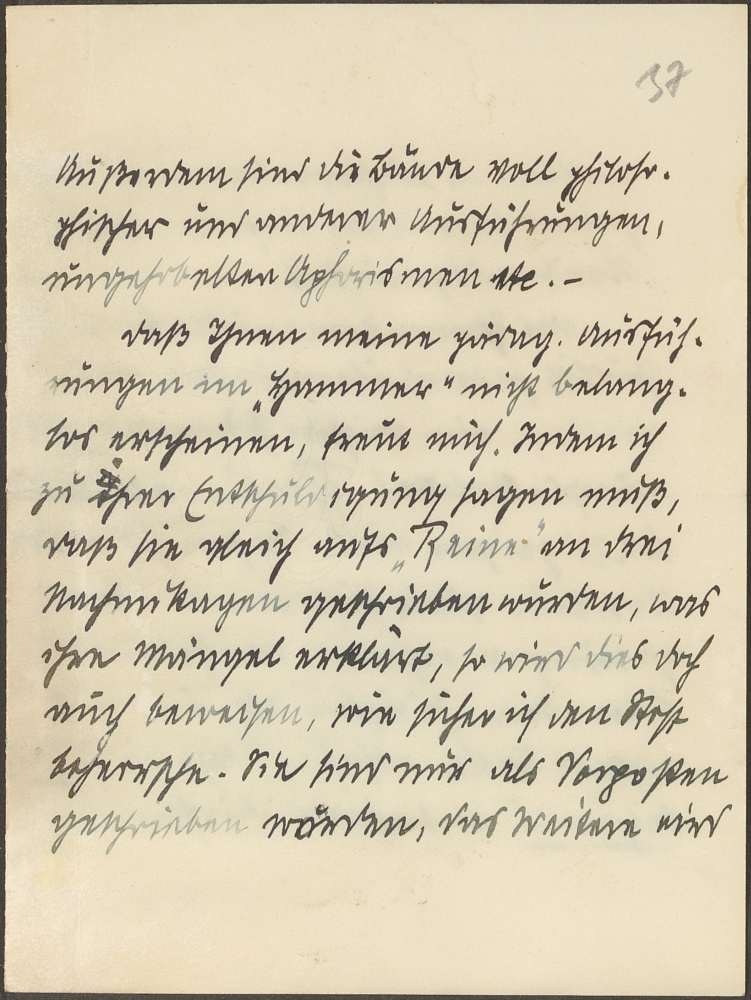 37
Außerdem sind die Bände voll philoso-
phischer und anderer Ausführungen,
ungehobelten Aphorismen etc. –
Daß Ihnen meine pädag. Ausfüh-
rungen im „Hammer“ nicht belang-
los erscheinen, freut mich. Indem ich
zu ihrer Entschuldigung sagen muß,
daß sie gleich aufs „Reine“ an drei
Nachmittagen geschrieben wurden, was
ihre Mängel erklärt, so wird dies doch
auch beweisen, wie sicher ich den Stoff
beherrsche. Sie sind nur als Vorposten
geschrieben worden, das Weitere wird